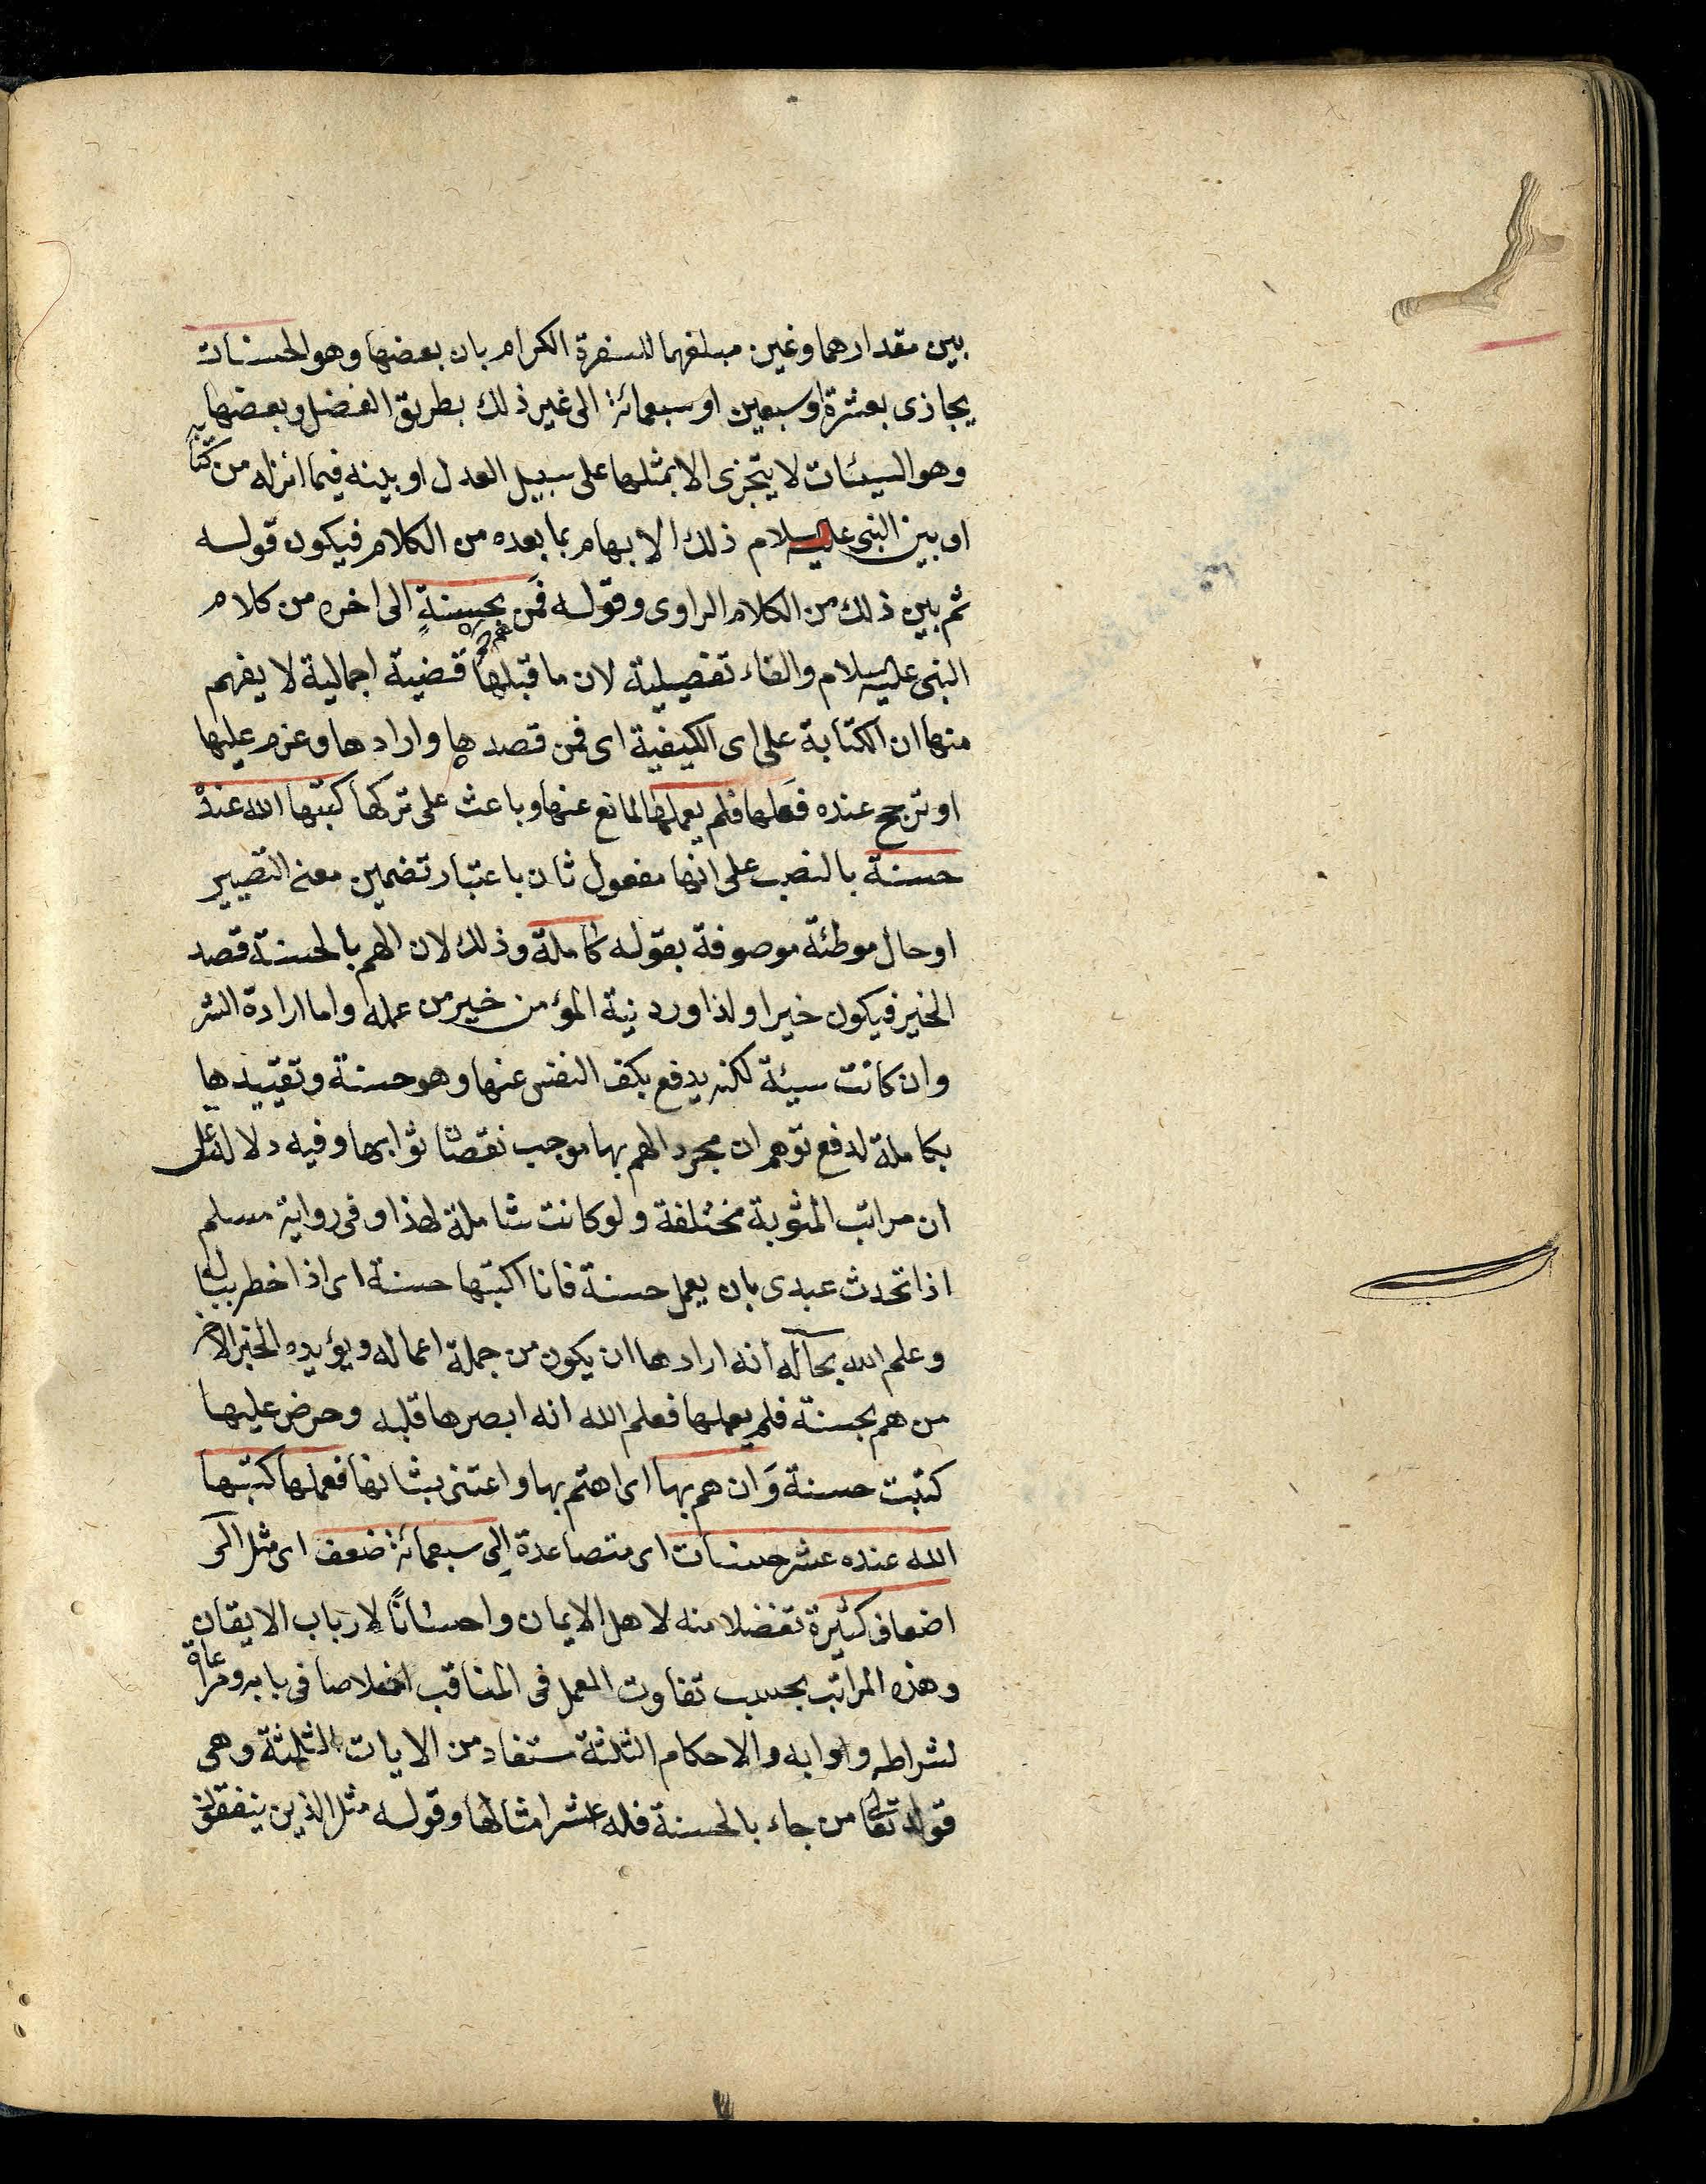 بين مقدارهما وعين مبلغهما للسفرة الكرام بان بعضها وهو الحسنات
يجازى بعشرة او سبعين او سبعمائة الى غير ذلك بطريق الفضل وبعضها
وهو السيئات لا يتجزى الا بمثلها على سبيل العدل او بينه فيما انزله من كتابه
او بين النبى عليه السلام ذلك الابهام بما بعده من الكلام فيكون قوله
ثم بين ذلك من الكلام الراوى وقوله فمن هم بحسنةٍ الى اخره من كلام
النبى عليه السلام والفاء تفصيلية لان ما قبلها قضية اجمالية لا يفهم
منها ان الكتابة على اى الكيفية اى فمن قصدها وارادها وعزم عليها
او ترجح عنده فعلها فلم يعملها لمانع عنها وباعث على تركها كتبها الله عنده
حسنة بالنصب على انها مفعول ثان باعتبار تضمين معنى التصيير
او حال موطئة موصوفة بقوله كاملة وذلك لان الهم بالحسنة قصد
الخير فيكون خيرا ولذا ورد نية المؤمن خير من عمله واما ارادة الشر
وان كانت سيئة لكنه يدفع بكف النفس عنها وهو حسنة وتقييدها
بكاملة لدفع توهم ان مجرد الهم بها موجب نقصان ثوابها وفيه دلالة على
ان مراتب المثوبة مختلفة ولو كانت شاملة لهذا وفى رواية مسلم
اذا تحدث عبدى بان يعمل حسنة فانا اكتبها حسنة اى اذا خطر بباله
وعلم الله بحاله انه ارادها ان يكون من جملة اعماله ويؤيده الخبر الاخر
من هم بحسنة فلم يعملها فعلم الله انه ابصرها قلبه وحرض عليها
كتبت حسنة وَان هم بها اى اهتم بها واعتنى بشانها فعملها كتبها
الله عنده عشر حسنات اى متصاعدة الى سبعمائة ضعف اى مثل الى
اضعاف كثيرة تفضلا منه لاهل الايمان واحسانًا لارباب الايقان
وهذه المراتب بحسب تفاوت العمل فى المناقب اخلاصا فى بابه ومراعاة
لشرائطه وادابه والاحكام الثلثة ستفاد من الايات الثلثة وهى
قوله تعالى من جاء بالحسنة فله عشر امثالها وقوله مثل الذين ينفقون